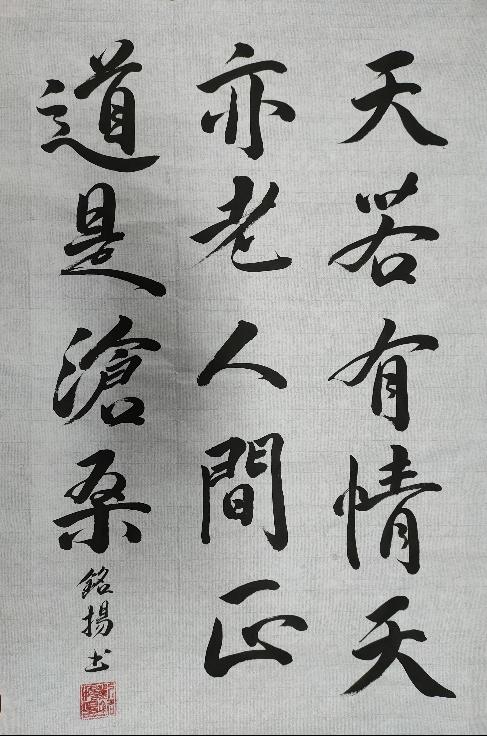 天若有情天
亦老人間正
道是滄桑
銘揚书